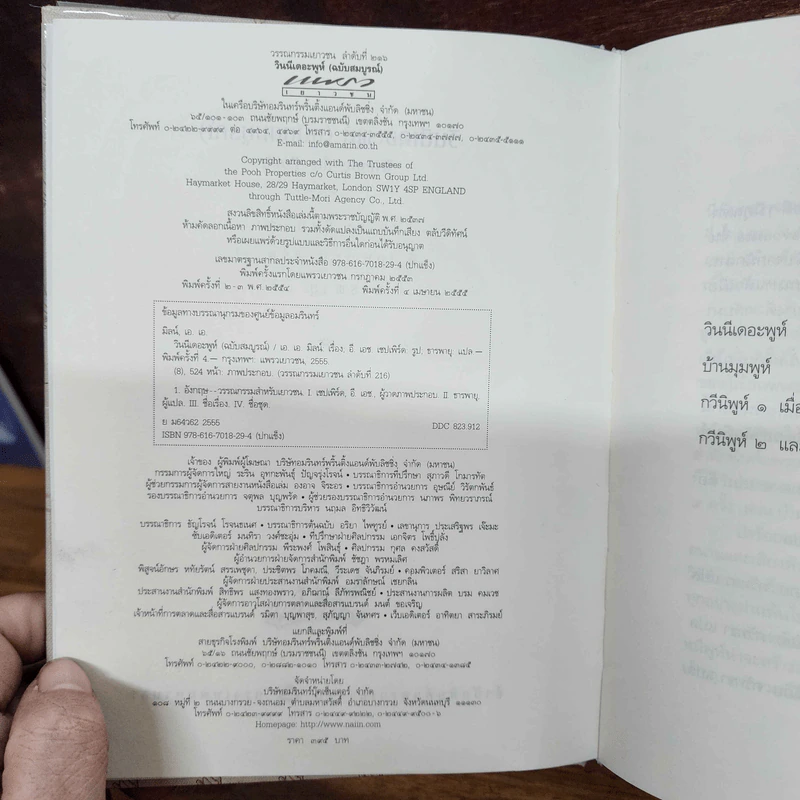 วรรณกรรมเยาวชน ลำดับที่ ๒๑๖
วินนีเดอะพูห์ (ฉบับสมบูรณ์)
แพรว
เยาวชน
ในเครือบริษัทอมรินทร์พริ้นติ้งแอนด์พับลิชชิ่ง จำกัด (มหาชน)
๖๕/๑๐๑-๑๐๓ ถนนชัยพฤกษ์ (บรมราชชนนี) เขตตลิ่งชัน กรุงเทพฯ ๑๐๑๗๐
โทรศัพท์ ๐-๒๔๒๒-๙๙๙๙ ต่อ ๔๙๖๔, ๔๙๖๙ โทรสาร ๐-๒๔๓๔-๓๕๕๕, ๐-๒๔๓๔-๓๗๗๗, ๐-๒๔๓๕-๕๑๑๑
E-mail: info@amarin.co.th
Copyright arranged with The Trustees of
the Pooh Properties c/o Curtis Brown Group Ltd.
Haymarket House, 28/29 Haymarket, London SW1Y 4SP ENGLAND
through Tuttle-Mori Agency Co., Ltd.
สงวนลิขสิทธิ์หนังสือเล่มนี้ตามพระราชบัญญัติ พ.ศ. ๒๕๓๗
ห้ามคัดลอกเนื้อหา ภาพประกอบ รวมทั้งดัดแปลงเป็นแถบบันทึกเสียง ตลับวีดิทัศน์
หรือเผยแพร่ด้วยรูปแบบและวิธีการอื่นใดก่อนได้รับอนุญาต
เลขมาตรฐานสากลประจำหนังสือ 978-616-7018-29-4 (ปกแข็ง)
พิมพ์ครั้งแรกโดยแพรวเยาวชน กรกฎาคม ๒๕๕๓
พิมพ์ครั้งที่ ๒-๓ พ.ศ. ๒๕๕๔ พิมพ์ครั้งที่ ๔ เมษายน ๒๕๕๕
ข้อมูลทางบรรณานุกรมของศูนย์ข้อมูลอมรินทร์
มิลน์, เอ. เอ.
วินนีเดอะพูห์ (ฉบับสมบูรณ์) / เอ. เอ. มิลน์ เรื่อง; อี. เอช. เชปเพิร์ด รูป; ธารพายุ แปล —
พิมพ์ครั้งที่ 4.— กรุงเทพฯ: แพรวเยาวชน, 2555.
(8), 524 หน้า: ภาพประกอบ. (วรรณกรรมเยาวชน ลำดับที่ 216)
1. อังกฤษ--วรรณกรรมสำหรับเยาวชน. I. เชปเพิร์ด, อี. เอช., ผู้วาดภาพประกอบ. II. ธารพายุ,
ผู้แปล. III. ชื่อเรื่อง. IV. ชื่อชุด.
ย ม64ว62 2555 DDC 823.912
ISBN 978-616-7018-29-4 (ปกแข็ง)
เจ้าของ ผู้พิมพ์ผู้โฆษณา บริษัทอมรินทร์พริ้นติ้งแอนด์พับลิชชิ่ง จำกัด (มหาชน)
กรรมการผู้จัดการใหญ่ ระริน อุทกะพันธุ์ ปัญจรุ่งโรจน์ • บรรณาธิการที่ปรึกษา สุภาวดี โกมารทัต
ผู้ช่วยกรรมการผู้จัดการสายงานหนังสือเล่ม องอาจ จิระอร • บรรณาธิการอำนวยการ อุษณีย์ วิรัตกพันธ์
รองบรรณาธิการอำนวยการ จตุพล บุญพรัด • ผู้ช่วยรองบรรณาธิการอำนวยการ นภาพร พิทยวราภรณ์
บรรณาธิการบริหาร นฤมล อิทธิวิวัฒน์
บรรณาธิการ ธัญโรจน์ โรจนธเนศ • บรรณาธิการต้นฉบับ อริยา ไพฑูรย์ • เลขานุการ ประเสริฐพร เจ๊ะมะ
ซับเอดิเตอร์ มนทิรา วงศ์ชะอุ่ม • ที่ปรึกษาฝ่ายศิลปกรรม เอกจิตร โพธิ์ปลั่ง
ผู้จัดการฝ่ายศิลปกรรม พีระพงศ์ โพสินธุ์ • ศิลปกรรม กุศล คงสวัสดิ์
ผู้อำนวยการฝ่ายจัดการสำนักพิมพ์ ชัชฎา พรหมเลิศ
พิสูจน์อักษร หทัยรัตน์ สรรเพชุดา, ประชิตพร โภคมณี, วีระเดช จันภิรมย์ • คอมพิวเตอร์ สริสา ยาวิลาศ
ผู้จัดการฝ่ายประสานงานสำนักพิมพ์ อมราลักษณ์ เชยกลิ่น
ประสานงานสำนักพิมพ์ สิทธิพร แสงทองพราว, อภิฌาณ์ ลีภัทรพณิชย์ • ประสานงานการผลิต บรม คมเวช
ผู้จัดการอาวุโสฝ่ายการตลาดและสื่อสารแบรนด์ มนต์ ขอเจริญ
เจ้าหน้าที่การตลาดและสื่อสารแบรนด์ รมิตา บุญพาสุข, สุภัญญา จันทศร • เว็บเอดิเตอร์ อาทิตยา สาระภิรมย์
แยกสีและพิมพ์ที่
สายธุรกิจโรงพิมพ์ บริษัทอมรินทร์พริ้นติ้งแอนด์พับลิชชิ่ง จำกัด (มหาชน)
๖๕/๑๖ ถนนชัยพฤกษ์ (บรมราชชนนี) เขตตลิ่งชัน กรุงเทพฯ ๑๐๑๗๐
โทรศัพท์ ๐-๒๔๒๒-๙๐๐๐, ๐-๒๘๘๒-๑๐๑๐ โทรสาร ๐-๒๔๓๓-๒๗๔๒, ๐-๒๔๓๔-๑๓๘๕
จัดจำหน่ายโดย
บริษัทอมรินทร์บุ๊คเซ็นเตอร์ จำกัด
๑๐๘ หมู่ที่ ๒ ถนนบางกรวย-จงถนอม ตำบลมหาสวัสดิ์ อำเภอบางกรวย จังหวัดนนทบุรี ๑๑๑๓๐
โทรศัพท์ ๐-๒๔๒๓-๙๙๙๙ โทรสาร ๐-๒๔๔๙-๙๒๒๒, ๐-๒๔๔๙-๙๕๐๐-๖
Homepage: http://www.naiin.com
ราคา ๓๙๕ บาท
วินนีเดอะพูห์
บ้านมุมพูห์
กวีนิพูห์ ๑ เมื่อ
กวีนิพูห์ ๒ และ